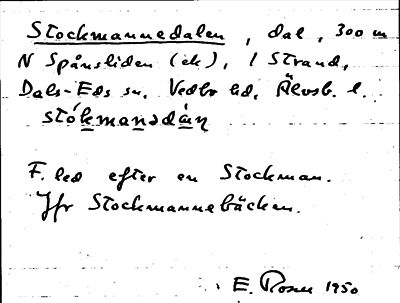 Stockmannedalen, dal, 300 m
N Spånsliden (ek), 1 Strand,
Dals-Eds sn. Vedbo hd, Älvsb. l.
stókmansdáṇ
F. led efter en Stockman.
Jfr Stockmannebäcken.
E. Rosen 1950